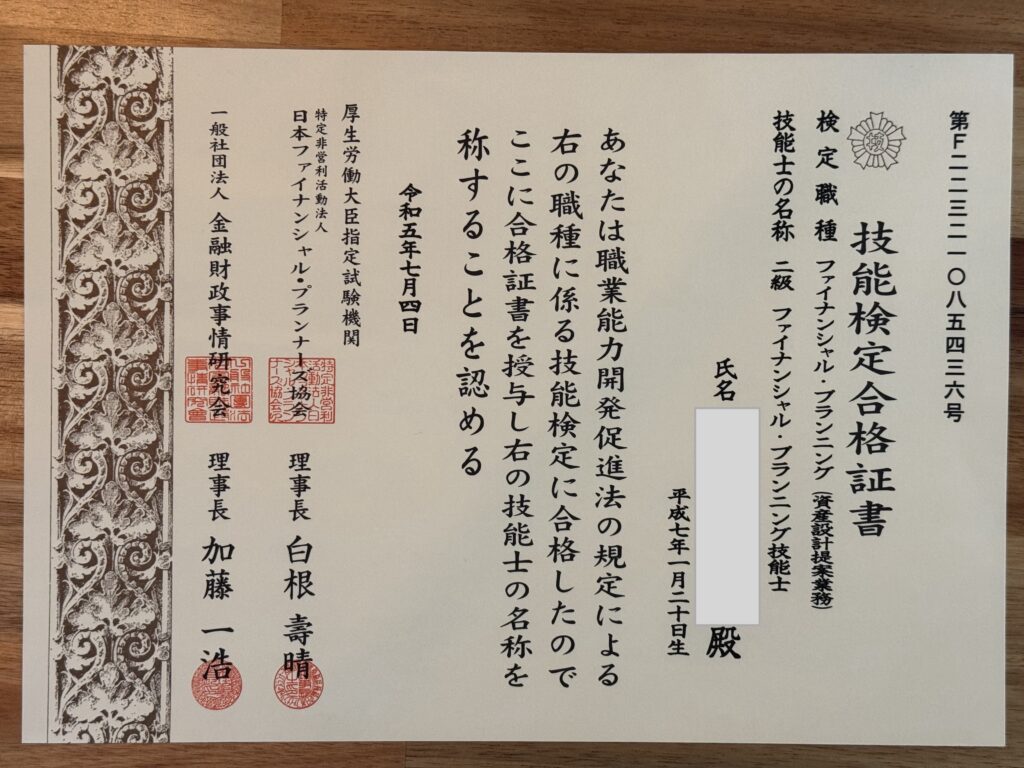 第F二二三二一〇八五四三六号
技能検定合格証書
検定職種 ファイナンシャル・プランニング(資産設計提案業務)
技能士の名称 二級 ファイナンシャル・プランニング技能士
氏名 殿
平成七年一月二十日生
あなたは職業能力開発促進法の規定による
右の職種に係る技能検定に合格したので
ここに合格証書を授与し右の技能士の名称を
称することを認める
令和五年七月四日
厚生労働大臣指定試験機関
特定非営利活動法人
日本ファイナンシャル・プランナーズ協会 理事長 白根 壽晴
一般社団法人 金融財政事情研究会 理事長 加藤 一浩